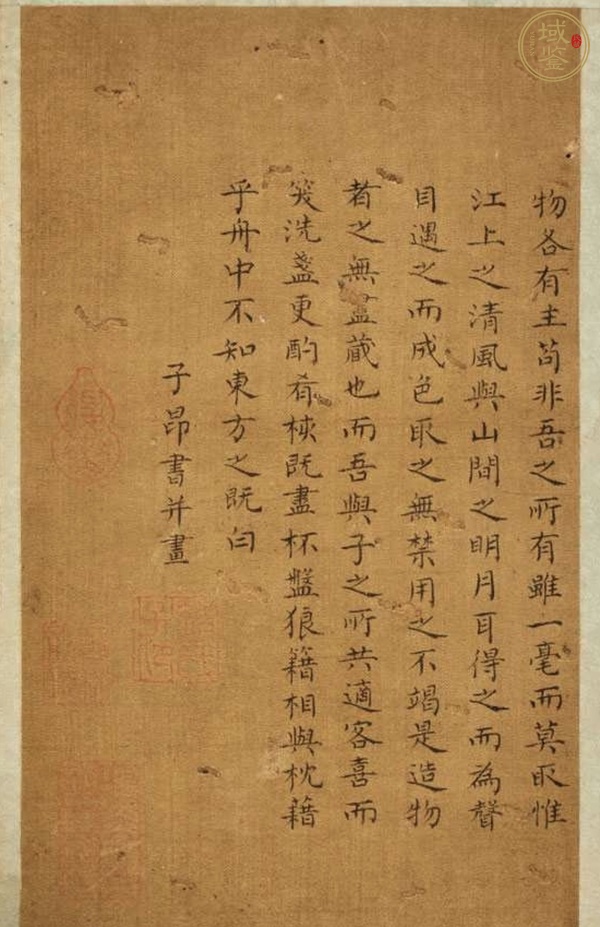 物各有主苟非吾之所有雖一毫而莫取惟
江上之清風與山間之明月耳得之而為聲
目遇之而成色取之無禁用之不竭是造物
者之無盡藏也而吾與子之所共適客喜而
笑洗盞更酌肴核既盡杯盤狼籍相與枕籍
乎舟中不知東方之既白
子昂書并畫
域鑒